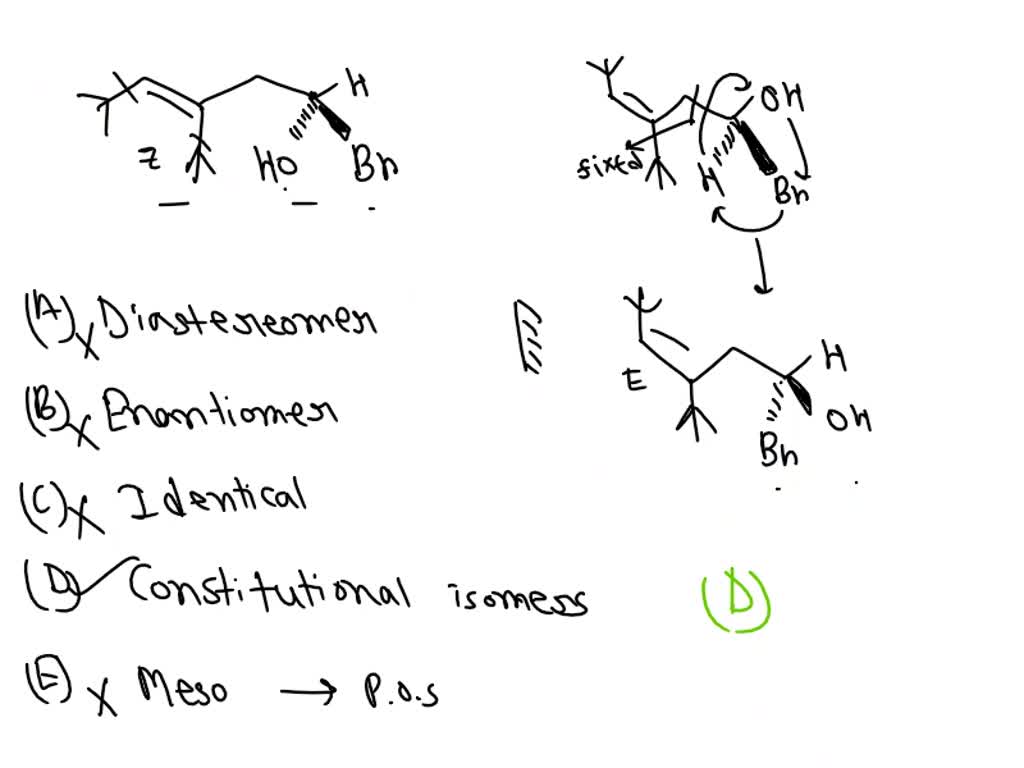 H OH
Z HO Bn fixed H Bn
(A) x Diastereomer
H
E
(B) x Enantiomer
OH
Bn
(C) x Identical
(D) Constitutional isomess (D)
(E) x Meso → P.O.S